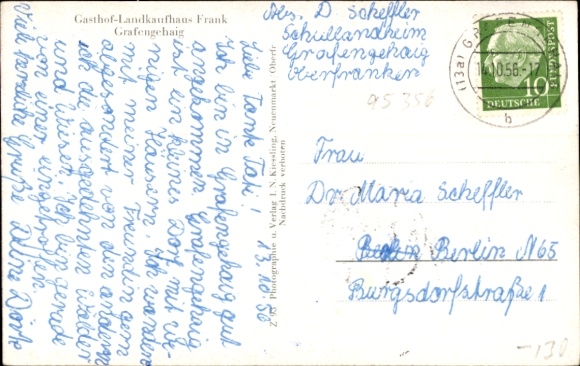 Gasthof-Landkaufhaus Frank
Grafengehaig
Abs. D. Scheffler
Schullandheim
Grafengehaig
Oberfranken
95356
(13a) G
14.10.56.-17
b
10
DEUTSCHE
BUNDESPOST
13.10.56
Liebe Tante Tati!
Ich bin in Grafengehaig gut
angekommen. Grafengehaig
ist ein kleines Dorf mit
nigen Häusern. Ich wandere
mit meiner Freundin gern
abgesondert von den anderen
durch die ausgedehnten Wälder
und Wiesen. Ich bin gerade
von einer eingetroffen.
Viele herzliche Grüße Deine Dörte
Z 93 Photographie u. Verlag I. N. Kiessling, Neuenmarkt Oberfr.
Nachdruck verboten
Frau
Dr Maria Scheffler
Berlin N65
Burgsdorfstraße 1
-130